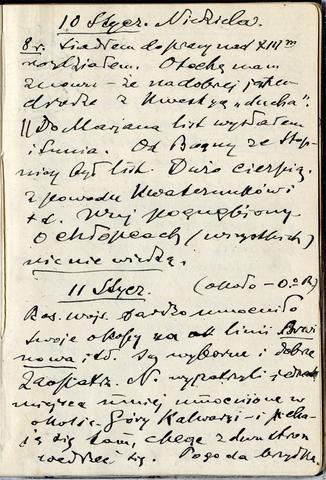 10 Stycz. Niedziela.
8 r. Siadłem do pracy nad XIII m
rozdziałem. Otuchę mam
znowu – że na dobrej jestem
drodze z kwestyą „ducha".
|| Do Marjana list wysłałem
iUnia. Od Bagny ze Stop-
nicy był list. Dużo cierpią
z powodu kwaterunków i
t d. Wuj pognębiony
o chłopcach (wszystkich)
nic nie wiedzą.
11 Stycz. (około – O. R)
Ros. wojs. bardzo umocniło
swoje okopy na linii
nowa itd. Są wyborne i dobrze
zaopatrz. N. wypatrzyli jednak
miejsca mniej umocnione w
okolic. Góry Kalwarji – i pcha-
ją się tam, chcąc z dwu stron
wedrzeć się. Pogoda brzydka.